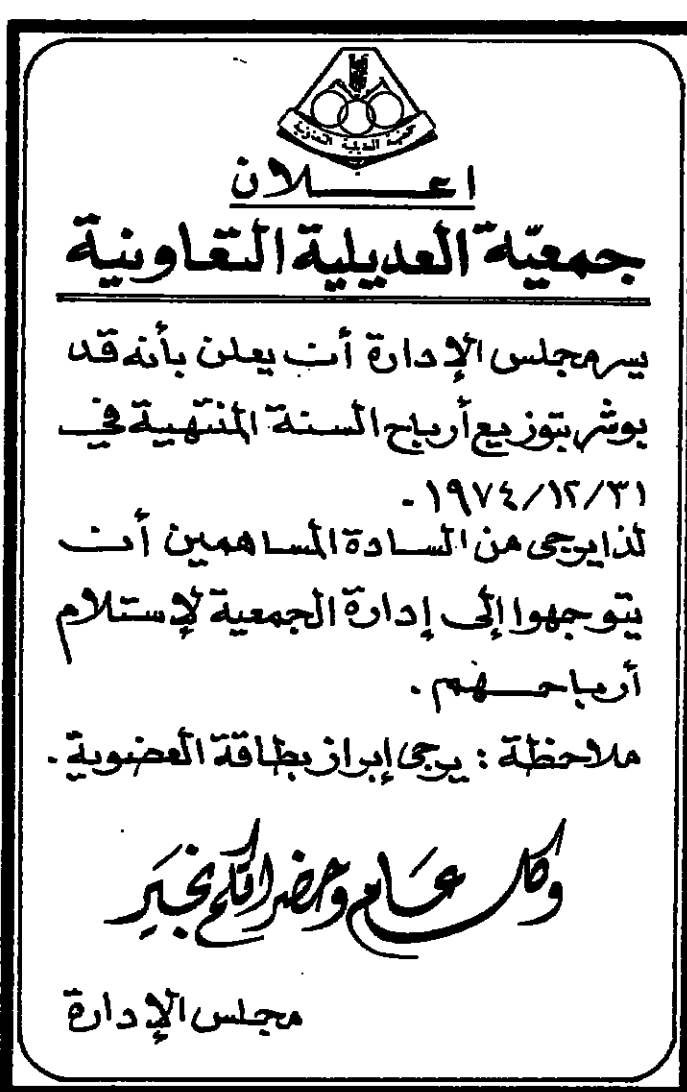 جمعية العديلية التعاونية
اعـــلان
جمعيّة العديلية التعاونية
يسر مجلس الإدارة أن يعلن بأنه قد
بوشر بتوزيع أرباح السنة المنتهية في
١٩٧٤/١٢/٣١ -
لذا يرجى من السادة المساهمين أن
يتوجهوا إلى إدارة الجمعية لإستلام
أرباحـــهم .
ملاحظة : يرجى إبراز بطاقة العضوية .
وكل عــام وحضراتكم بخير
مجلس الإدارة